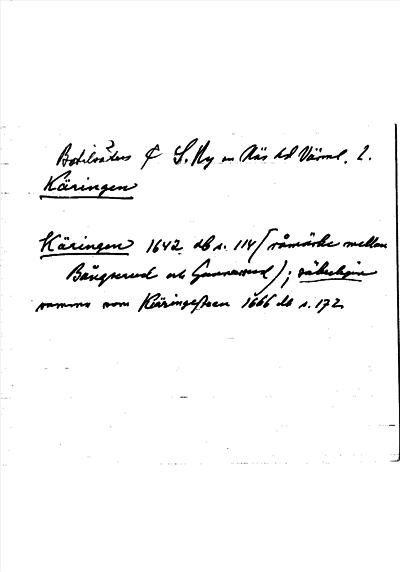 Botilsäters ? S. Ny sn Näs hd Värml. l.
Käringen
Käringen 1642 db s. 114 (råmärke mellan
Bångserud och Gunnerud); säkerligen
samma som Käringesteen 1666 db s. 172